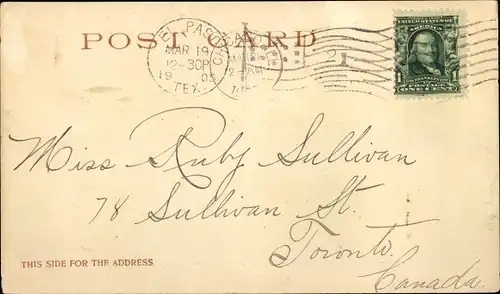 POST CARD
EL PASO
MAR 19
12-30P
1905
TEX.
1
UNITED STATES OF AMERICA
FRANKLIN
POSTAGE
1 1
ONE CENT
Miss Ruby Sullivan
78 Sullivan St.
Toronto.
Canada.
THIS SIDE FOR THE ADDRESS